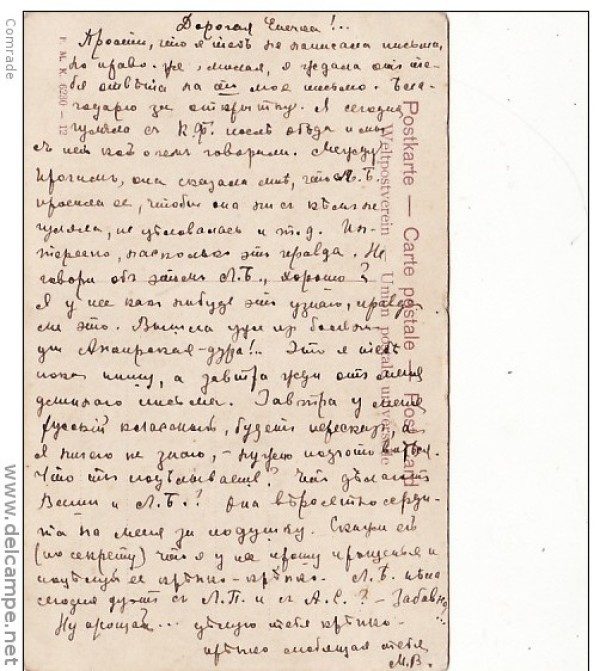 Дорогая Еничка!..
Прости, что я тебѣ не написала письма,
но право-же, милая, я ждала отъ те-
бя отвѣта на то мое письмо. Бла-
годарю за открытку. Я сегодня
гуляла съ К.Ф. послѣ обѣда и мы
съ ней кой о чемъ говорили. Между
прочимъ, она сказала мнѣ, что Л.Б.
просила ее, чтобы она ни съ кѣмъ не
гуляла, не цѣловалась и т.д. Ин-
тересно, насколько это правда. Не
говори объ этомъ Л.Б., хорошо?
Я у нее какъ нибудь это узнаю, правда
ли это. Вышла уже изъ больни-
цы - дура!.. Это я тебѣ
пока пишу, а завтра жди отъ меня
длиннаго письма. Завтра у меня
русскій классный, будетъ пересказъ, а
я ничего не знаю, - нужно подготовиться.
Что ты подѣлываешь? Что дѣлаютъ
и Л.Б.? Она вѣроятно серди-
та на меня за подушку. Скажи ей
(по секрету) что я у нее прошу прощенья и
поцѣлуй ее крѣпко-крѣпко. Л.Б.
сегодня съ Л.П. и съ А.С.? - Забавно?
Ну прощай... цѣлую тебя крѣпко-
крѣпко любящая тебя
М.В.
Postkarte — Carte postale — Post card
Weltpostverein Union postale universelle
P. M. K. 6290 - 12
Comrade
www.delcampe.net